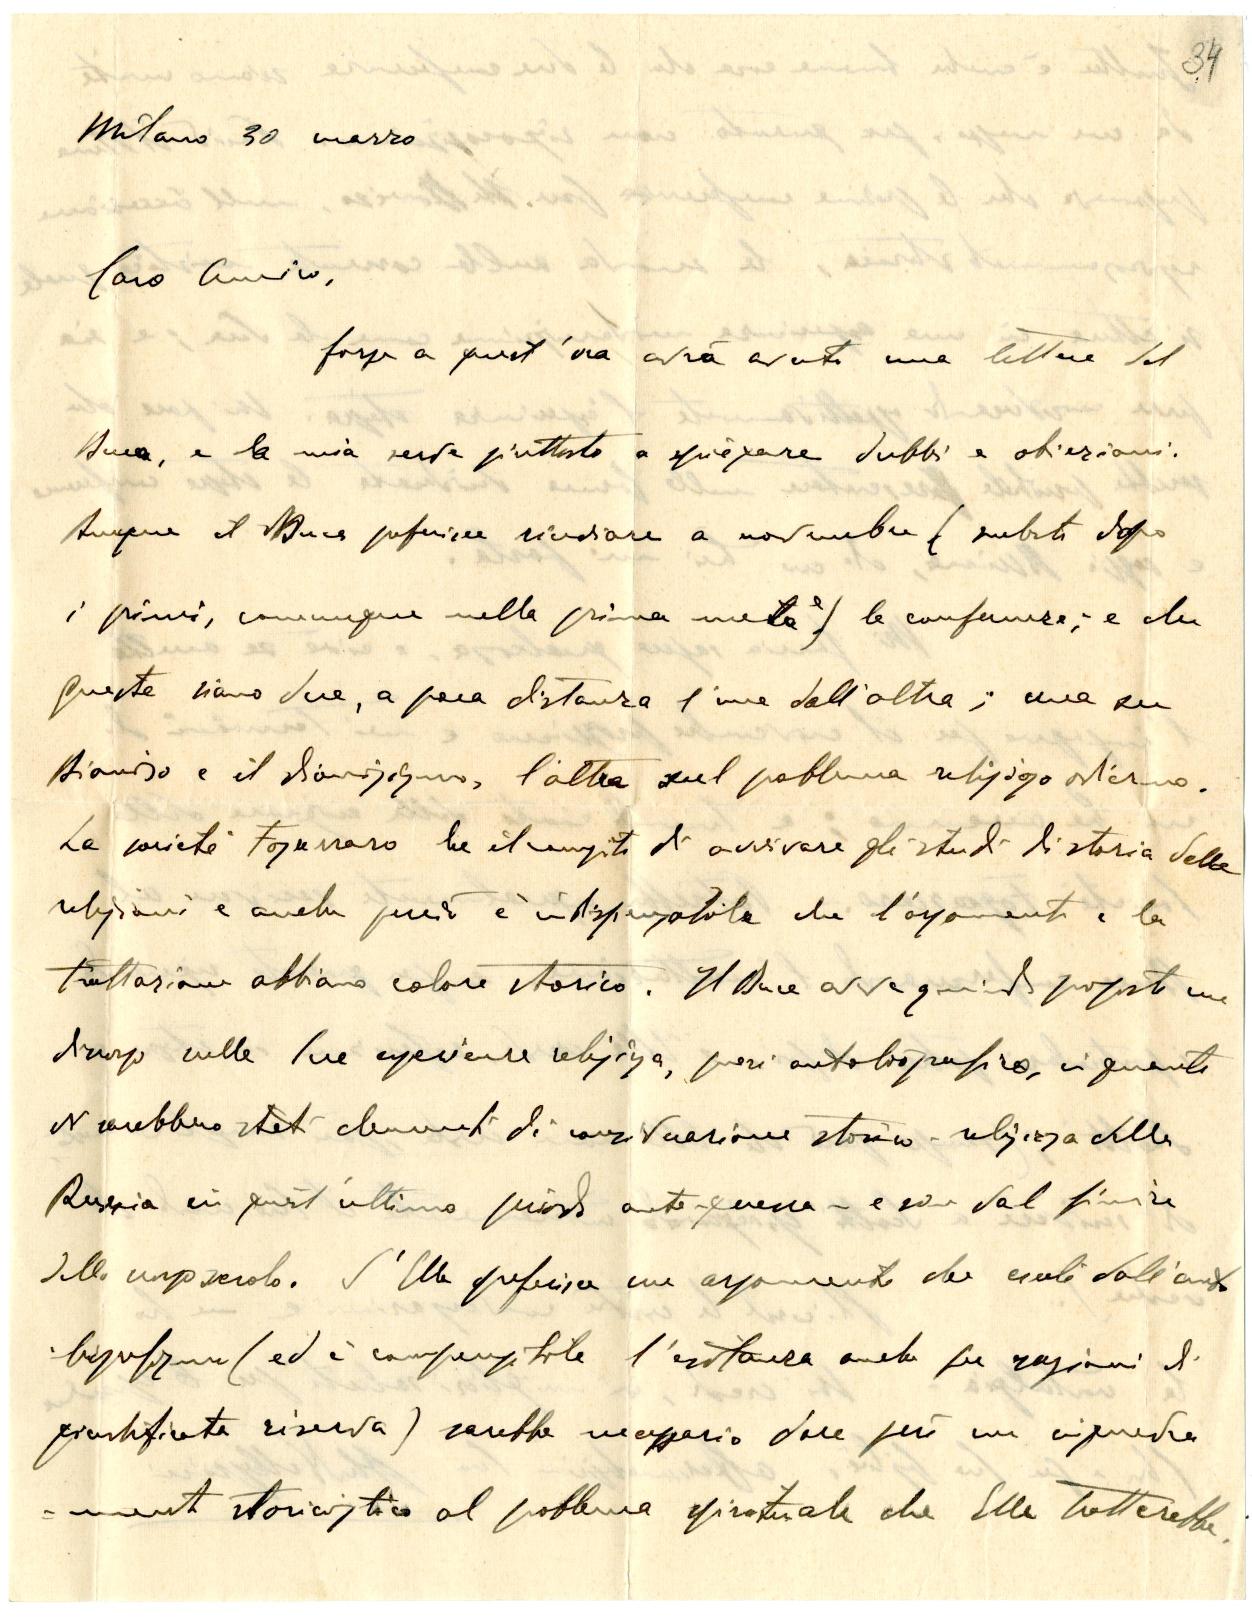 34
Milano 30 marzo
Caro Amico,
forse a quest'ora avrà avuto una lettera del
Duca, e la mia serve piuttosto a spiegare dubbi e obiezioni.
Dunque il Duca preferisce rimandare a novembre (subito dopo
i primi, comunque nella prima metà) le conferenze; e che
queste siano due, a poca distanza l'una dall'altra; una su
Dioniso e il dionisismo, l'altra sul problema religioso odierno.
La società Fogazzaro ha il compito di avvivare gli studi di storia delle
religioni e anche perciò è indispensabile che l'argomento e la
trattazione abbiano colore storico. Il Duca aveva quindi proposto un
discorso sulle Sue esperienze religiose, quasi autobiografico, in quanto
vi sarebbero stati elementi di conversazione storico-religiosa della
Russia in quest'ultimo periodo ante-guerra - e son dal finire
dello scorso secolo. S'Ella preferisce un argomento che esuli dall'auto
-biografismo (ed è comprensibile l'esitanza anche per ragioni di
giustificata riserva) sarebbe necessario dare però un inquadra
=mento storicistico al problema spirituale che Ella tratterebbe.